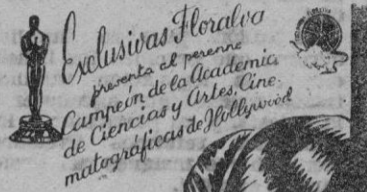 Exclusivas Floralva
presenta al perenne
Campeón de la Academia
de Ciencias y Artes, Cine-
matográficas de Hollywood